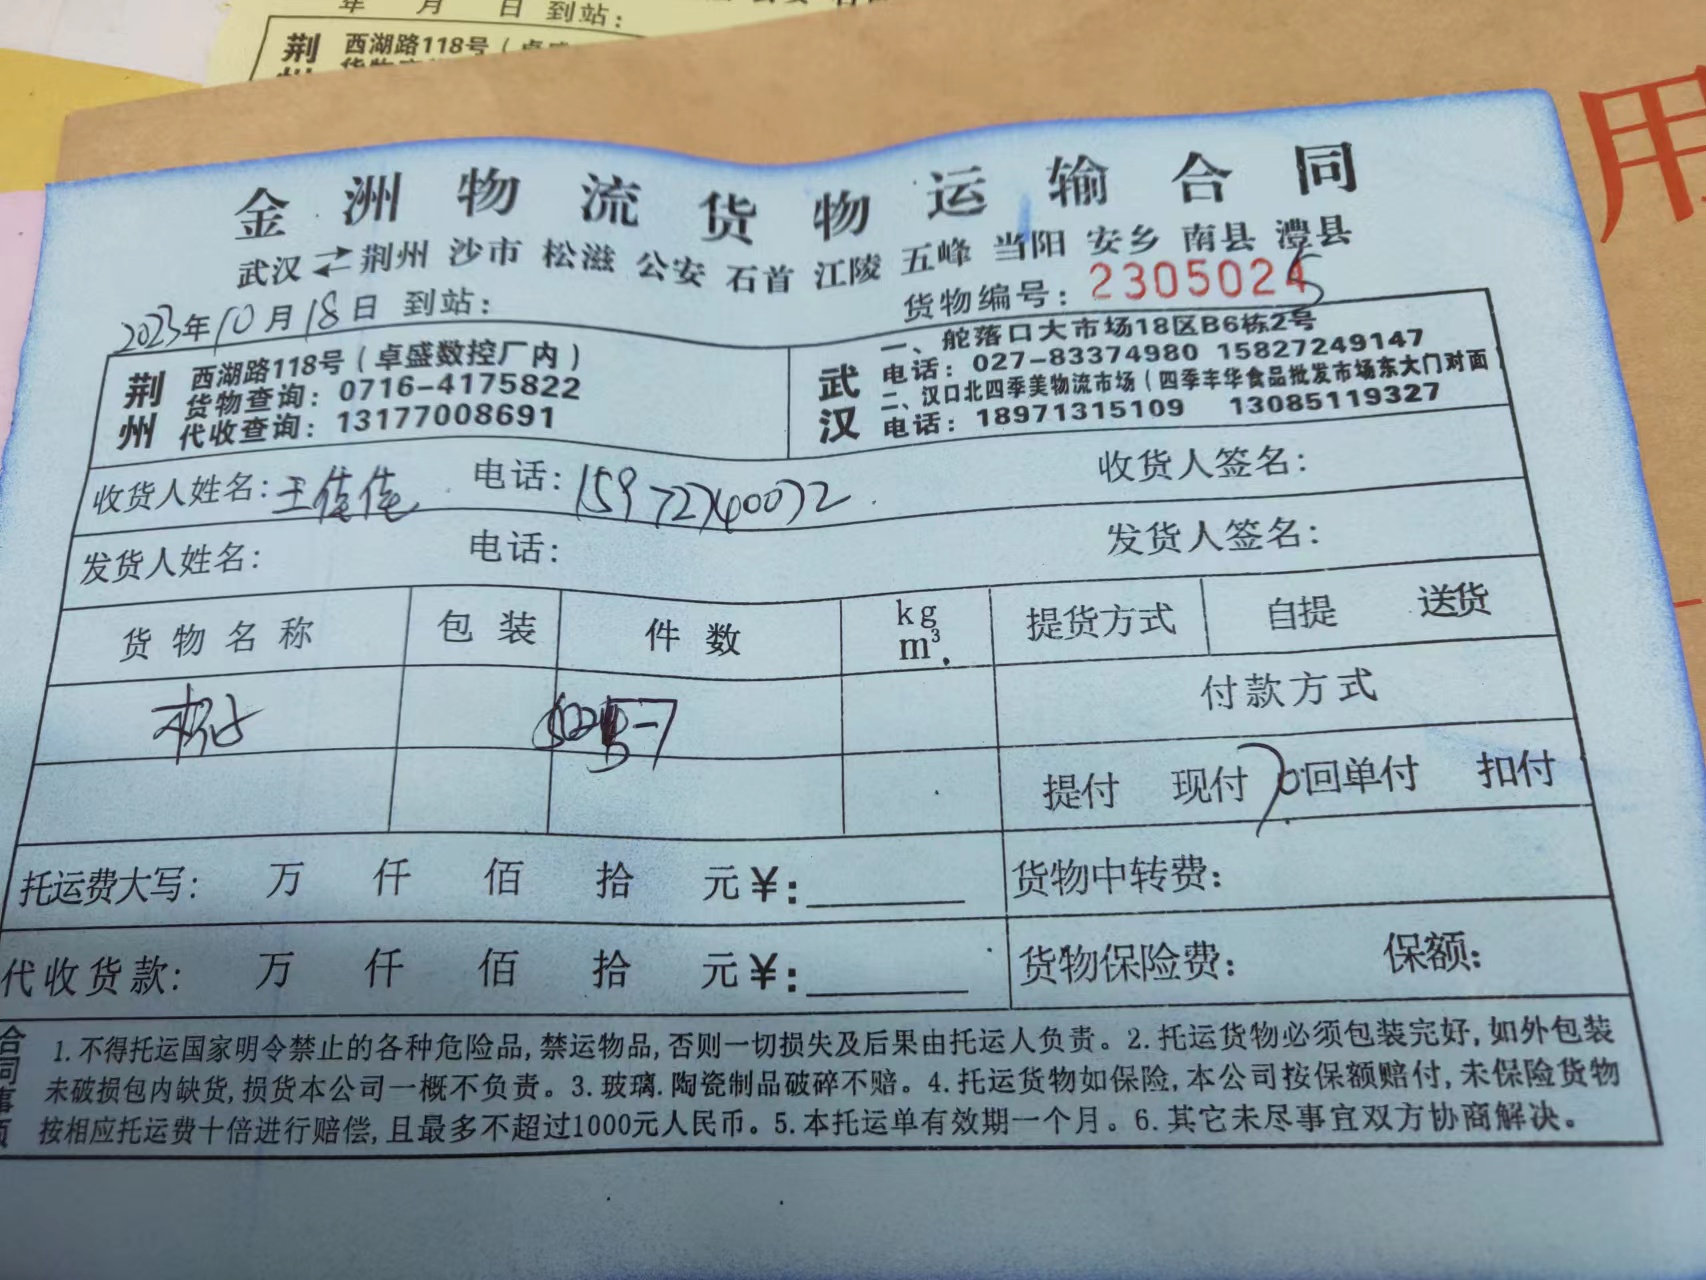 年 月 日 到站:
荆 西湖路118号
用
金洲物流货物运输合同
武汉⇌荆州 沙市 松滋 公安 石首 江陵 五峰 当阳 安乡 南县 澧县
2023年10月18日 到站: 货物编号: 23050245
荆州
西湖路118号(卓盛数控厂内)
货物查询: 0716-4175822
代收查询: 13177008691
武汉
一、舵落口大市场18区B6栋2号
电话: 027-83374980 15827249147
二、汉口北四季美物流市场(四季丰华食品批发市场东大门对面
电话: 18971315109 13085119327
收货人姓名: 王佳佳 电话: 15972240072 收货人签名:
发货人姓名: 电话: 发货人签名:
货物名称 包装 件数 kg m³ 提货方式 自提 送货
付款方式
提付 现付 70 回单付 扣付
托运费大写: 万 仟 佰 拾 元¥: 货物中转费:
代收货款: 万 仟 佰 拾 元¥: 货物保险费: 保额:
合同事项
1.不得托运国家明令禁止的各种危险品,禁运物品,否则一切损失及后果由托运人负责。2.托运货物必须包装完好,如外包装
未破损包内缺货,损货本公司一概不负责。3.玻璃.陶瓷制品破碎不赔。4.托运货物如保险,本公司按保额赔付,未保险货物
按相应托运费十倍进行赔偿,且最多不超过1000元人民币。5.本托运单有效期一个月。6.其它未尽事宜双方协商解决。